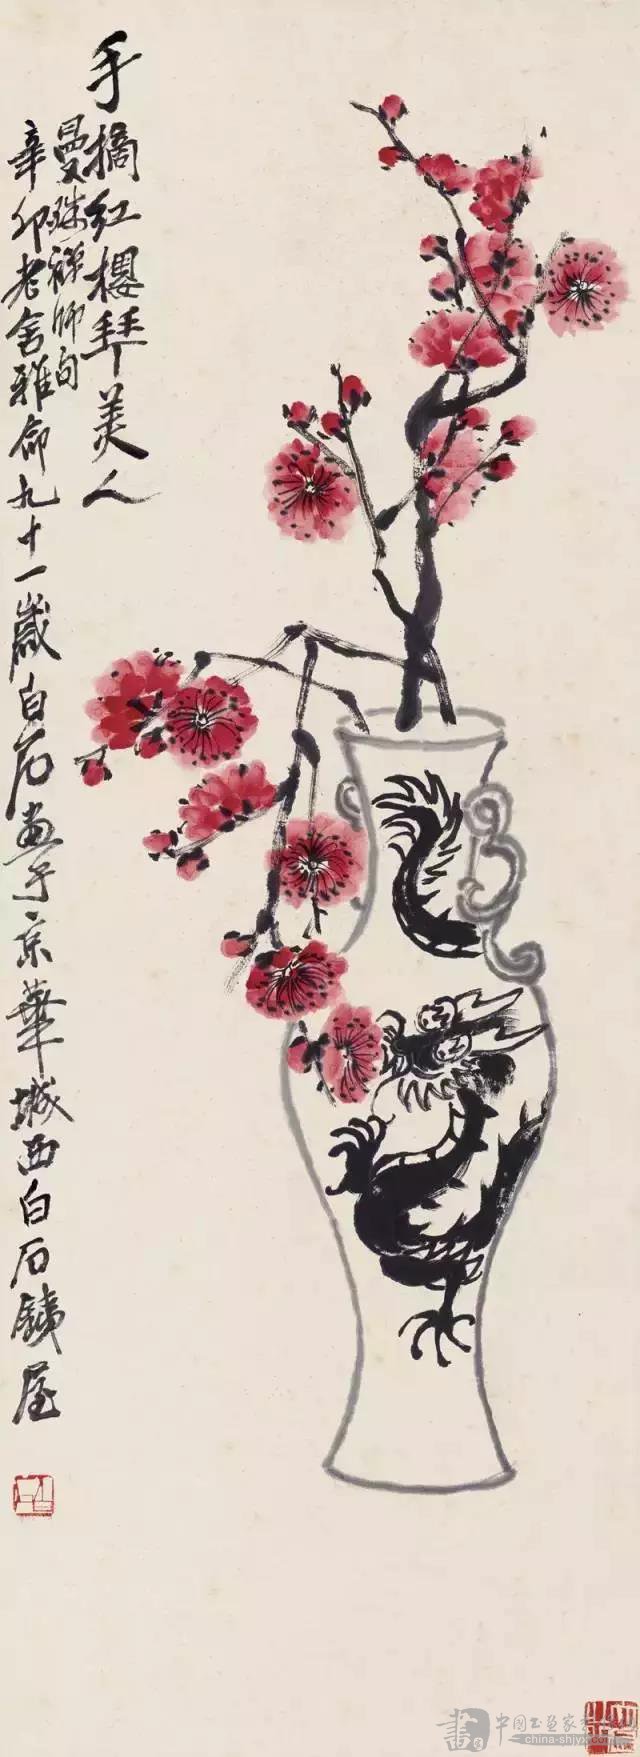 手摘红樱拜美人
曼殊禅师句
辛卯老舍雅命九十一岁白石画于京华城西白石铁屋
中国书画家
china-shjyx.com